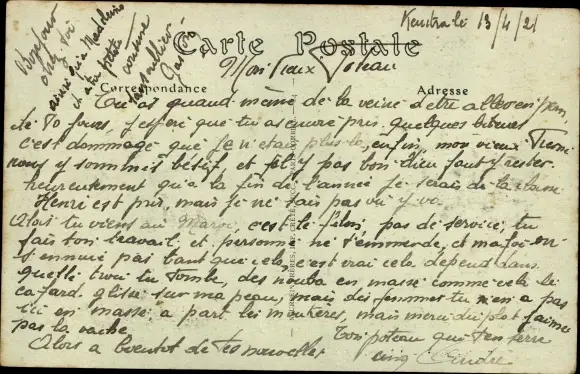 Kenitra le 13/4/21
Bonjour
chez toi
ainsi qu'a Madeleine
et a ta petite
cousine
sans oublier
Gaston
Carte Postale
Mon vieux Poteau
Correspondance
Adresse
Tu as quand même de la veine d'etre aller en perm,
de 30 jours, j'espere que tu as encore pris quelques bitures
c'est dommage que je n'etais plus la, enfin mon vieux
nous y sommes bésif, et y pas bon dieu faut y rester.
heureusement qu'a la fin de l'année je serais de la classe
Henri est pris, mais je ne sais pas ou y va.
Alors tu viens au Maroc, c'est le filon, pas de service, tu
fais ton travail, et personne ne t'emmerde, et ma foi on
s'ennuie pas tant que cela, c'est vrai cela depend dans
quelle trou tu tombe, des nouba en masse comme cela le
cafard glisse sur ma peau, mais des femmes tu n'en a pas
ici en masse, a part les moukères, mais merci du plat j'aime
pas la vache.
Ton poteau qui t'en serre
Alors a bientot de tes nouvelles
cinq André